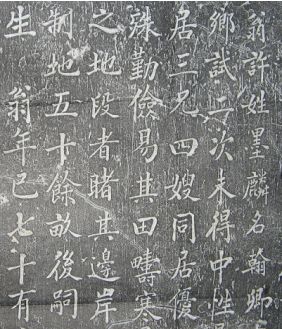 翁許姓墨麟名翰卿
鄉試二次未得中性
居三兄四嫂同居優
殊勤儉易其田疇寒
之地段者睹其邊岸
制地五十餘畝後嗣
生 翁年已七十有